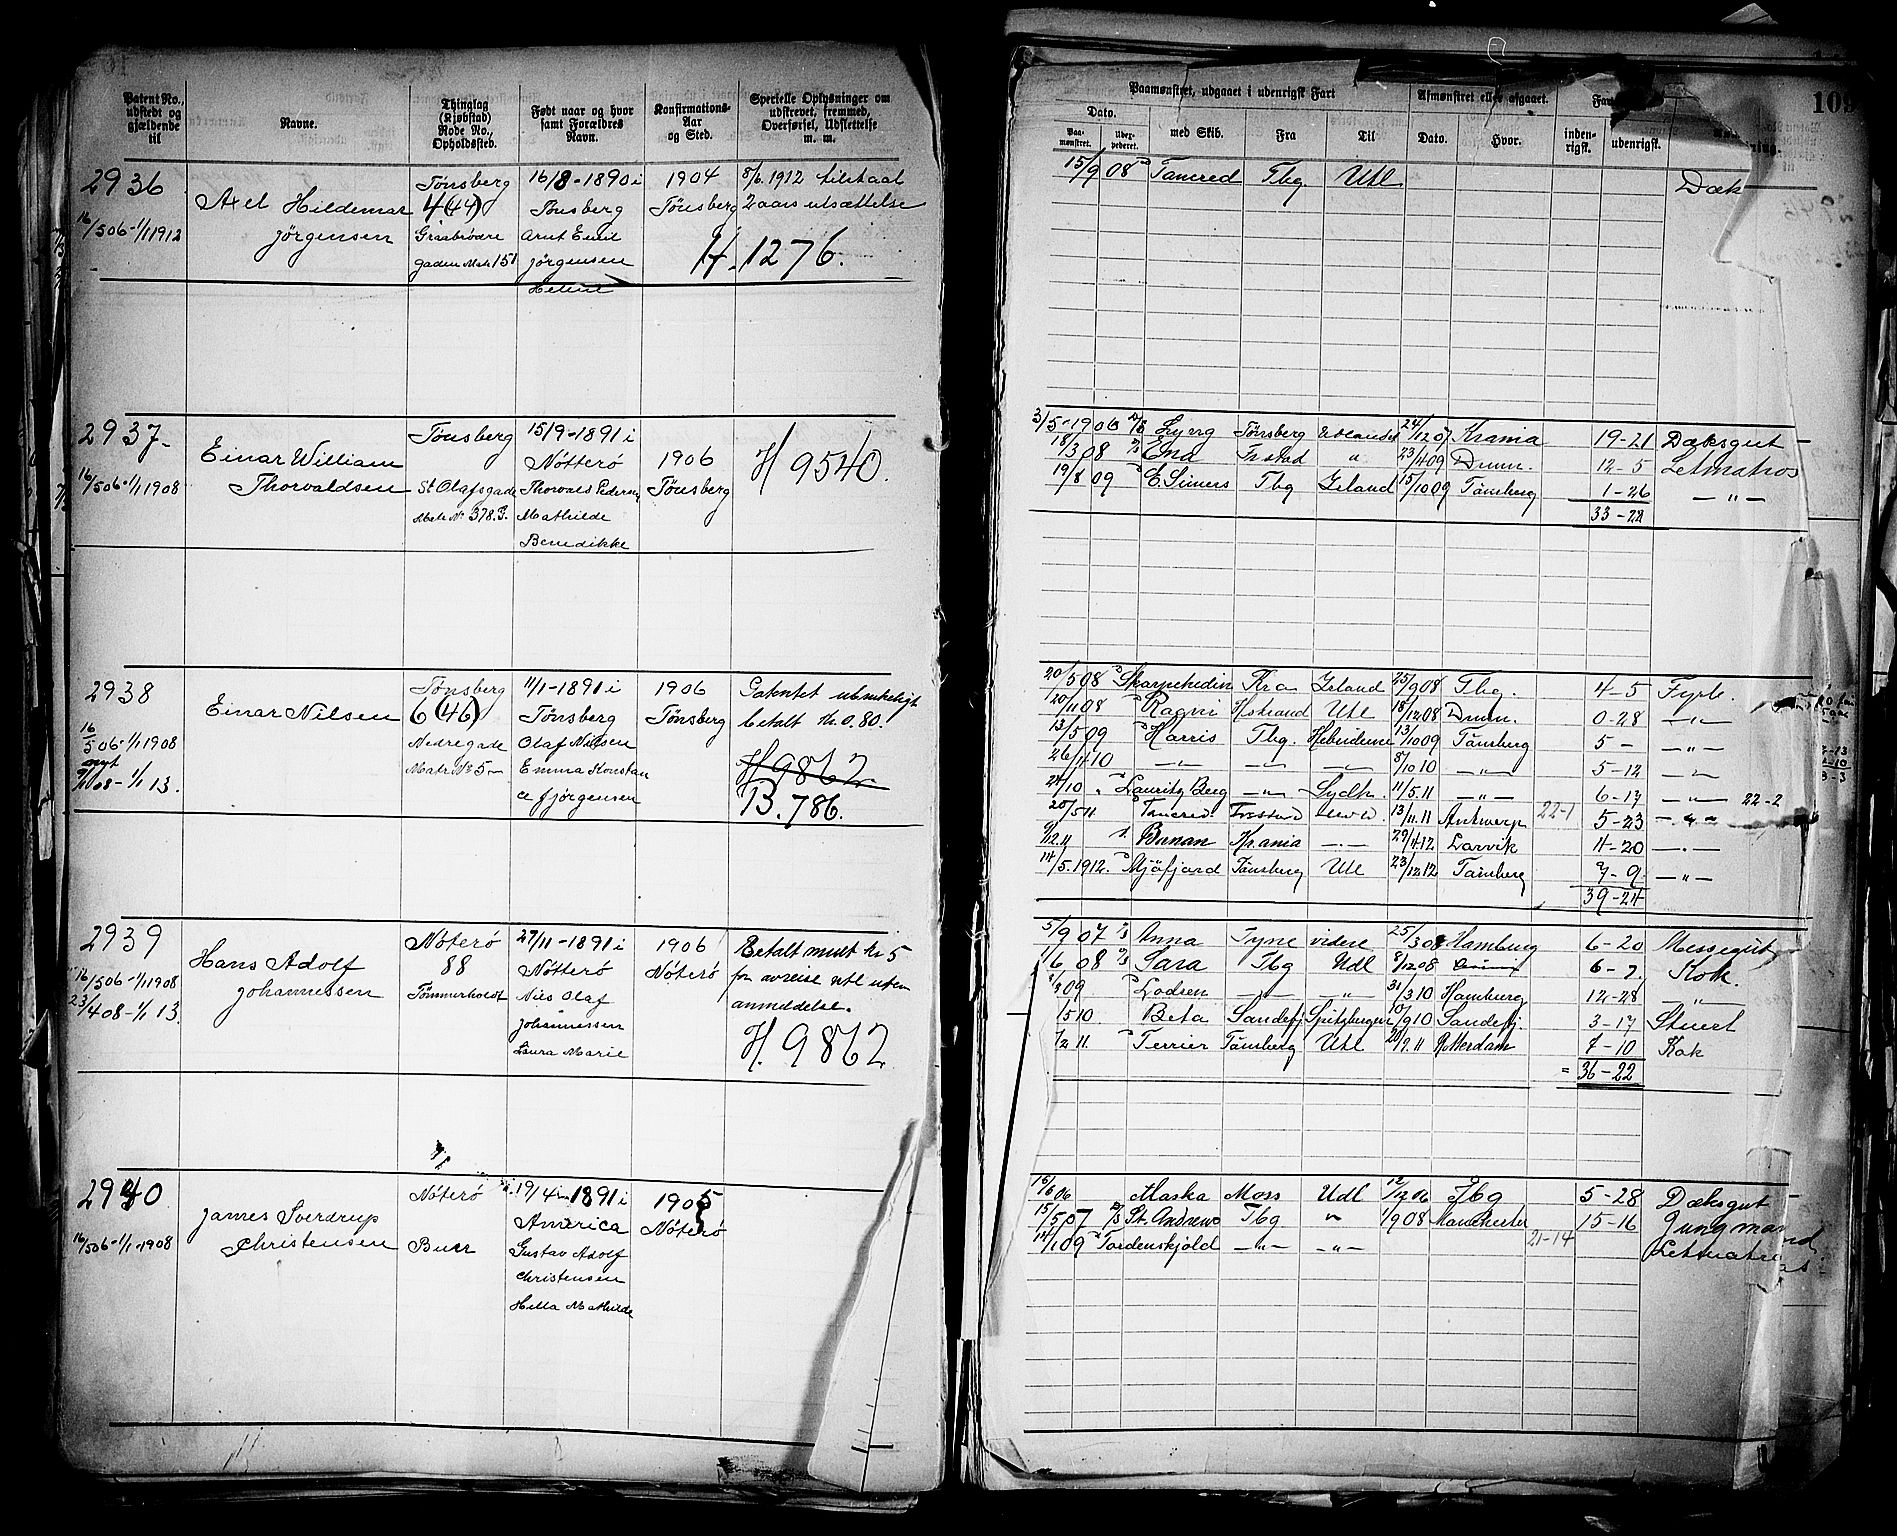 Patent No., udstedt og gjældende til
Navne.
Thinglag (Kjøbstad) Rode No., Opholdssted.
Født naar og hvor samt Forældres Navn.
Konfirmations-Aar og Sted.
Specielle Oplysninger om udskrevet, fremmed, Overførsel, Udsættelse m. m.
2936
16/5 06-1/1 1912
Axel Hildemar
Jørgensen
Tönsberg
4(44)
Graabrødre
gaden Matr 151
16/8-1890 i
Tönsberg
Arnt Emil
Jørgensen
Helene
1904
Tönsberg
8/6 1912 tilstaat
2 aars utsættelse
H. 1276.
2937-
16/5 06-1/1 1908
Einar William
Thorvaldsen
Tönsberg
St Olafsgade
Matr No 378.
15/9-1891 i
Nötterö
Thorvald Pedersen
Mathilde
Benedikke
1906
Tönsberg
H 9540.
2938
16/5 06-1/1 1908
nyt
08-1/1 13.
Einar Nilsen
Tönsberg
6(46)
Nedregade
Matr No 5-
11/1-1891 i
Tönsberg
Olaf Nilsen
Emma Konstan
ce Jørgensen
1906
Tönsberg
Patentet ubrukeligt
betalt Kr 0.80.
H 9862
B. 786.
2939
16/5 06-1/1 1908
23/4 08-1/1 13.
Hans Adolf
Johannessen
Nöterö
88
Tömmerholdt
27/11-1891 i
Nötterö
Nils Olaf
Johannessen
Laura Marie
1906
Nöterö
Betalt mulct kr 5
for avreise utl uten
anmeldelse.
H. 9862
2940
16/5 06-1/1-1908
James Sverdrup
Christensen
Nöterö
Buer
19/4 1891 i
America
Gustav Adolf
Christensen
Hilla Mathilde
1905
Nöterö
109
Paamønstret, udgaaet i udenrigsk Fart
Afmønstret eller afgaaet.
Dato.
Paa-mønstret.
med Skib.
Fra
Til
Dato.
Hvor.
inden-rigsk.
udenrigsk.
15/9 08 Tancred Tbg. Utl Dæk
3/5-1906 Lyng Tönsberg Udlandet 24/12 07 Krania 19-21 Dæksgut
18/3 08 Ena Frstad " 23/4 09 Dram. 12-5 Letmatros
19/8 09 E. Simers Tbg Island 15/10 09 Tönsberg 1-26 -"-
33-22
20/5 08 Skarphedin Kra Island 25/9 08 Tbg. 4-5 Fyrb.
20/11 08 Ragni Hstrand Utl 18/12 08 Dram. 0-28 -"-
13/5 09 Harris Tbg. Hebriderne 13/10 09 Tönsberg 5- -"-
26/4 10 -"- -"- -"- 8/10 10 -"- 5-12 -"-
24/10 Lauritz Berg -"- Sydh. 11/5.11 -"- 6-17 -"- 22-2
20/5 11 Tancred Frestad 13/11.11 Antwerp 22-1 5-23 -"-
9/12.11 Bonan Krania -"- 29/4 12 Larvik 4-20 -"-
14/5.1912. Mjöfjord Tönsberg Utl 23/12 12 Tönsberg 7-9 -"-
39-24
5/9 07 Anna Tyne videre 25/3 08 Hamburg 6-20 Messegut
1/6 08 Sara Tbg Udl 8/12 08 6-7 Kok.
09 Lodsen -"- -"- 31/3 10 Hamburg 12-28 -"-
15 10. Beta Sandefj Spitzbergen 10/9 10 Sandefj. 3-17 Stuert
7/2 11. Terrier Tönsberg Utl 11 Rotterdam 7-10 Kok
= 36-22
16/6 06 Alaska Moss Udl 12/12 06 Tbg 5-28 Dæksgut
15/5 07 St. Andrews Tbg " 1/9 08 Manchester 15-16 Jungmand
14/1 09 Tordenskjold -"- -"- 21-14 Letmatros